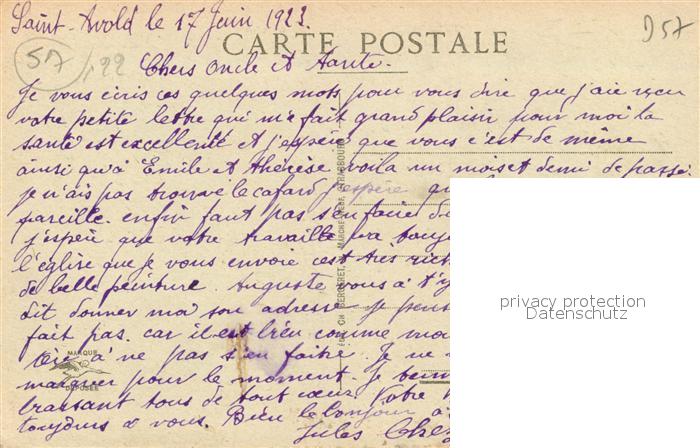 Saint-Avold le 17 Juin 1923.
D57
57
122
CARTE POSTALE
Chers Oncle et Tante.
Je vous ecris ces quelques mots pour vous dire que j'aie recu
votre petite lettre qui m'a fait grand plaisir pour moi la
santé est excellente et j'espère que vous c'est de même
ainsi qu'à Emile et Thérèse voila un mois et demi de passé.
je n'ais pas trouvé le cafard j'espère
pareille. enfin faut pas s'en faire
j'espère que votre travaille va
l'église que je vous envoie est tres
de belle peinture. Auguste vous à
dit donner moi son adresse je
fait pas. car il est bien comme moi
à ne pas s'en faire. Je ne
marquer pour le moment. Je
brassant tous de tout cœur Votre
toujours à vous. Bien le bonjour à
Jules
MARQUE
DÉPOSÉE
privacy protection
Datenschutz